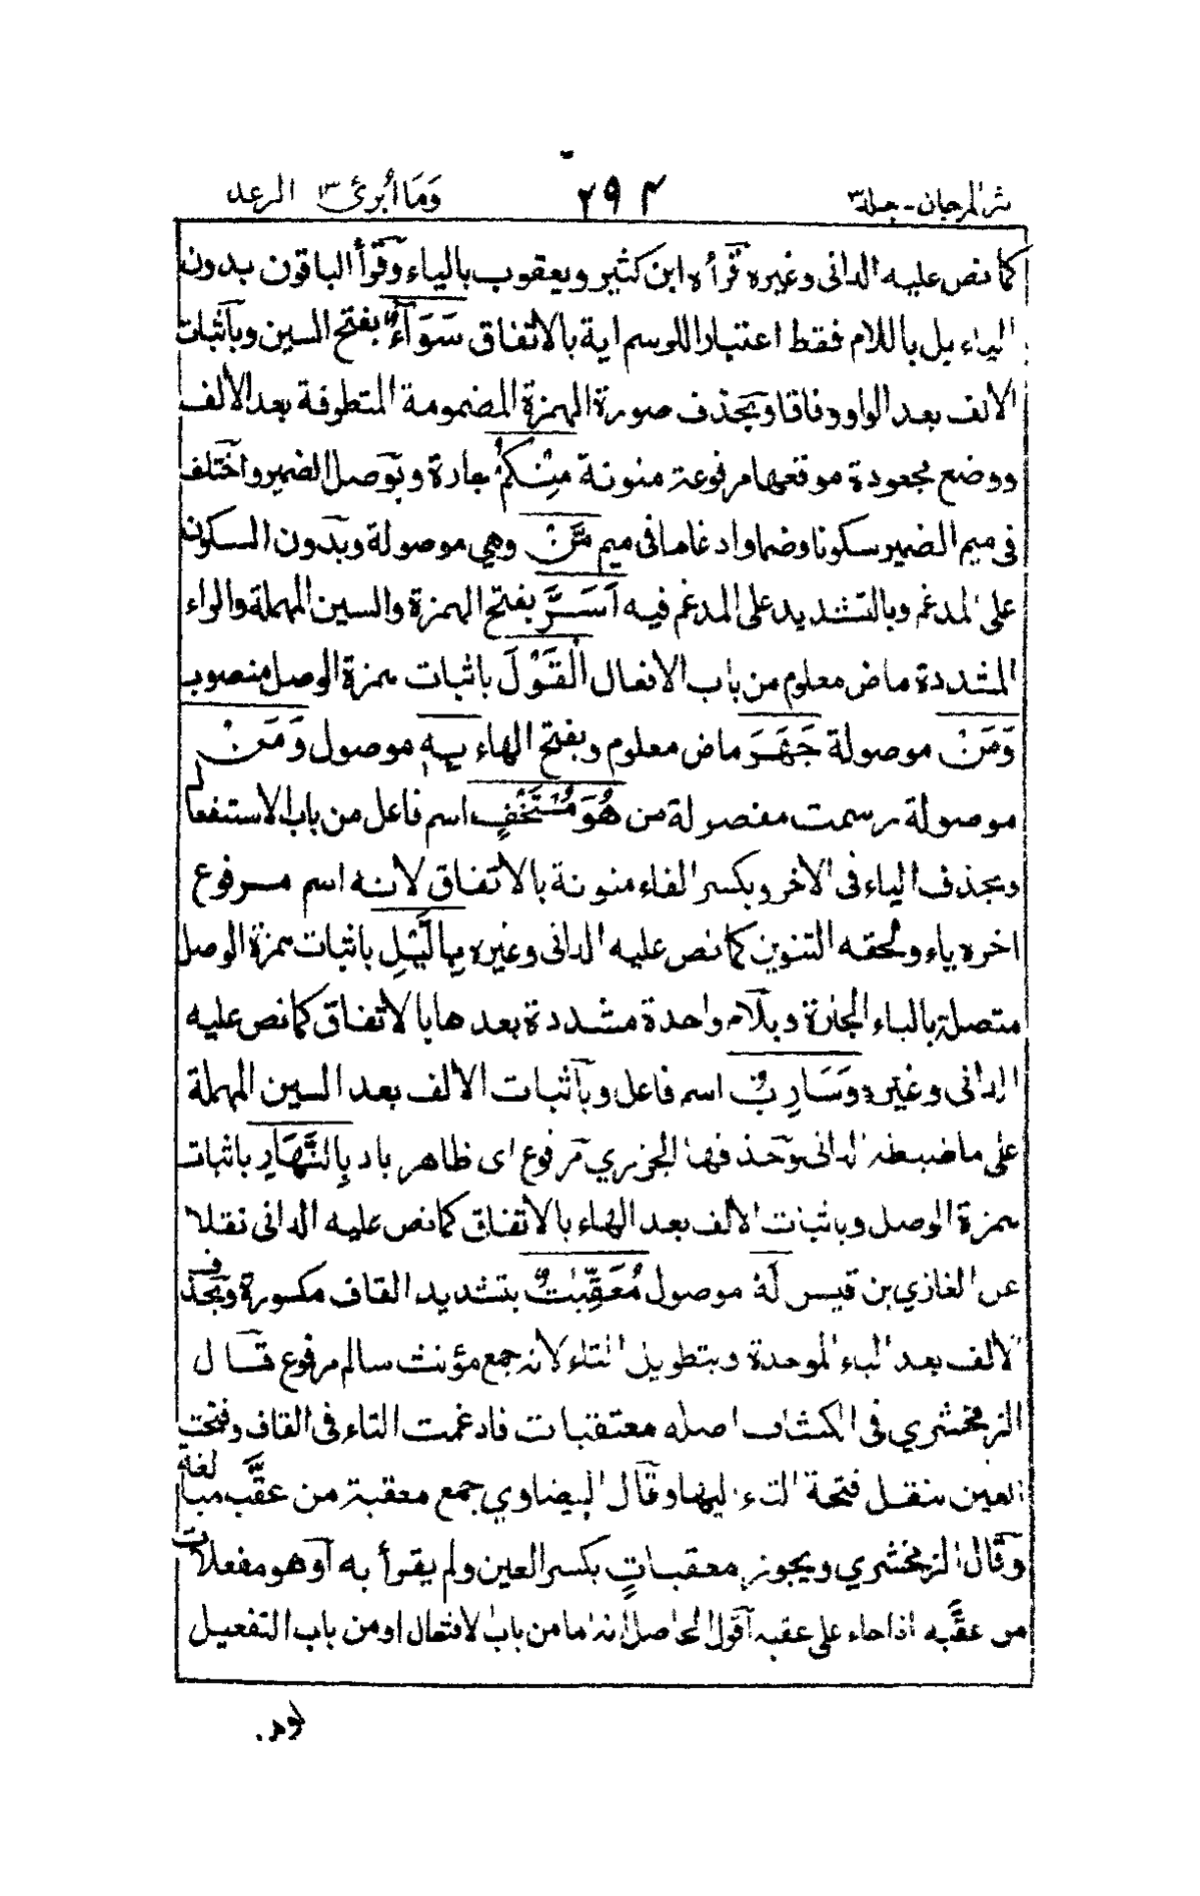 نثر المرجان - جلد ٣ ٢٩٤ وَمَا أُبَرِّئُ ١٣ الرعد
كما نص عليه الدانى وغيره قرأه ابن كثير ويعقوب بالياء وقرأ الباقون بدون
الياء بل باللام فقط اعتبارا للوسم اية بالاتفاق سَوَآءٌ بفتح السين وباثبات
الالف بعد الواو وفاقا وبحذف صورة الهمزة المضمومة المتطرفة بعد الألف
ووضع مجعودة موقعها مرفوعة منونة مِنْكُمْ جارة وبوصل الضمير واختلف
فى ميم الضمير سكونا وضما وادغاما فى ميم مَّنْ وهي موصولة وبدون السكون
على المدغم وبالتشديد على المدغم فيه اَسَرَّ بفتح الهمزة والسين المهملة والراء
المشددة ماض معلوم من باب الافعال الْقَوْلَ باثبات همزة الوصل منصوب
وَمَنْ موصولة جَهَرَ ماض معلوم وبفتح الهاء بِهٖ موصول وَمَنْ
موصولة رسمت مفصولة من هُوَ مُسْتَخْفٍ اسم فاعل من باب الاستفعال
وبحذف الياء فى الاخر وبكسر الفاء منونة بالاتفاق لانه اسم مرفوع
اخره ياء ولحقه التنوين كما نص عليه الدانى وغيره بِالَّيْلِ باثبات همزة الوصل
متصلة بالباء الجارة وبلام واحدة مشددة بعدها بالاتفاق كما نص عليه
الدانى وغيره وَسَارِبٌ اسم فاعل وباثبات الالف بعد السين المهملة
على ما ضبطه الدانى وحذفها الجزري مرفوع اى ظاهر باد بِالنَّهَارِ باثبات
همزة الوصل وباثبات الألف بعد الهاء بالاتفاق كما نص عليه الدانى نقلا
عن الغازي بن قيس لَهٗ موصول مُعَقِّبٰتٌ بتشديد القاف مكسورة وبحذف
الالف بعد الباء الموحدة وبتطويل التاء لانه جمع مؤنث سالم مرفوع قال
الزمخشري فى الكشاف اصله معتقبات فادغمت التاء فى القاف وفتحت
العين بنقل فتحة التاء اليها وقال البيضاوي جمع معقبة من عقّب مبالغة
وقال الزمخشري ويجوز معقبات بكسر العين ولم يقرأ به أو هو مفعلات
من عقَّبه اذا جاء على عقبه أقول الحاصل انه اما من باب الافتعال او من باب التفعيل